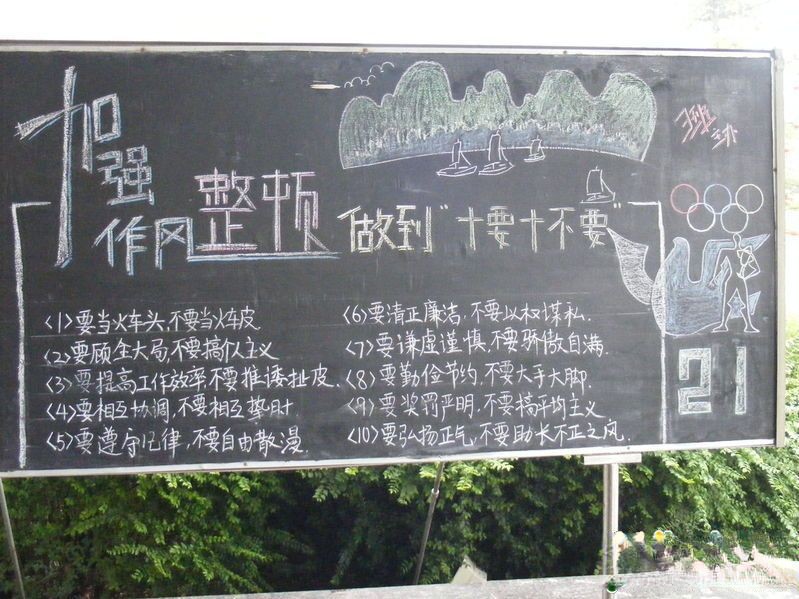 加强
作风整顿 做到"十要十不要"
21
<1>要当火车头,不要当火车皮
<2>要顾全大局,不要搞个人主义
<3>要提高工作效率,不要推诿扯皮.
<4>要相互协调,不要相互垫肘
<5>要遵守纪律,不要自由散漫.
<6>要清正廉洁,不要以权谋私.
<7>要谦虚谨慎,不要骄傲自满.
<8>要勤俭节约,不要大手大脚.
<9>要奖罚严明,不要搞平均主义
<10>要弘扬正气,不要助长不正之风.